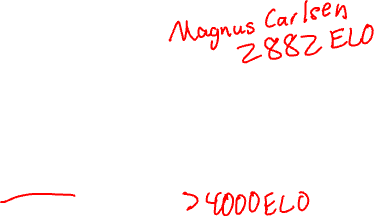 Magnus Carlsen
2882 ELO
>4000 ELO